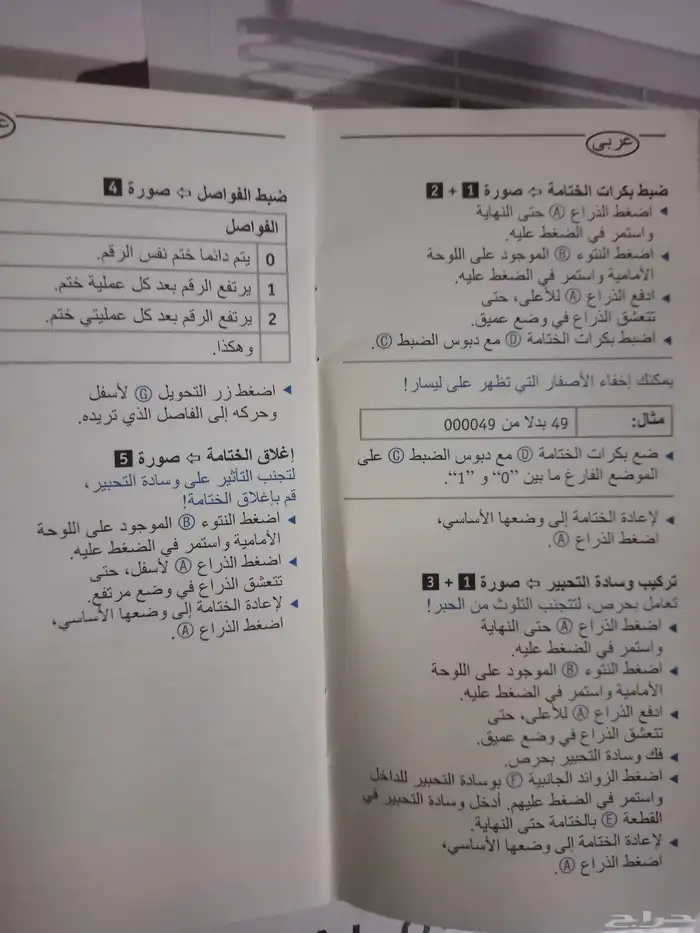 عربي
ضبط بكرات الختامة ⇦ صورة 1 + 2
◂ اضغط الذراع Ⓐ حتى النهاية
واستمر في الضغط عليه.
◂ اضغط النتوء Ⓑ الموجود على اللوحة
الأمامية واستمر في الضغط عليه.
◂ ادفع الذراع Ⓐ للأعلى، حتى
تتعشق الذراع في وضع عميق.
◂ اضبط بكرات الختامة Ⓓ مع دبوس الضبط Ⓒ.
يمكنك إخفاء الأصفار التي تظهر على ليسار!
مثال: 49 بدلا من 000049
◂ ضع بكرات الختامة Ⓓ مع دبوس الضبط Ⓒ على
الموضع الفارغ ما بين ”0“ و ”1“.
◂ لإعادة الختامة إلى وضعها الأساسي،
اضغط الذراع Ⓐ.
تركيب وسادة التحبير ⇦ صورة 1 + 3
تعامل بحرص، لتتجنب التلوث من الحبر!
◂ اضغط الذراع Ⓐ حتى النهاية
واستمر في الضغط عليه.
◂ اضغط النتوء Ⓑ الموجود على اللوحة
الأمامية واستمر في الضغط عليه.
◂ ادفع الذراع Ⓐ للأعلى، حتى
تتعشق الذراع في وضع عميق.
◂ فك وسادة التحبير بحرص.
◂ اضغط الزوائد الجانبية Ⓕ بوسادة التحبير للداخل
واستمر في الضغط عليهم. أدخل وسادة التحبير في
القطعة Ⓔ بالختامة حتى النهاية.
◂ لإعادة الختامة إلى وضعها الأساسي،
اضغط الذراع Ⓐ.
ضبط الفواصل ⇦ صورة 4
الفواصل
0 يتم دائما ختم نفس الرقم.
1 يرتفع الرقم بعد كل عملية ختم.
2 يرتفع الرقم بعد كل عمليتي ختم.
وهكذا.
◂ اضغط زر التحويل Ⓖ لأسفل
وحركه إلى الفاصل الذي تريده.
إغلاق الختامة ⇦ صورة 5
لتجنب التأثير على وسادة التحبير،
قم بإغلاق الختامة!
◂ اضغط النتوء Ⓑ الموجود على اللوحة
الأمامية واستمر في الضغط عليه.
◂ اضغط الذراع Ⓐ لأسفل، حتى
تتعشق الذراع في وضع مرتفع.
◂ لإعادة الختامة إلى وضعها الأساسي،
اضغط الذراع Ⓐ.
حراج